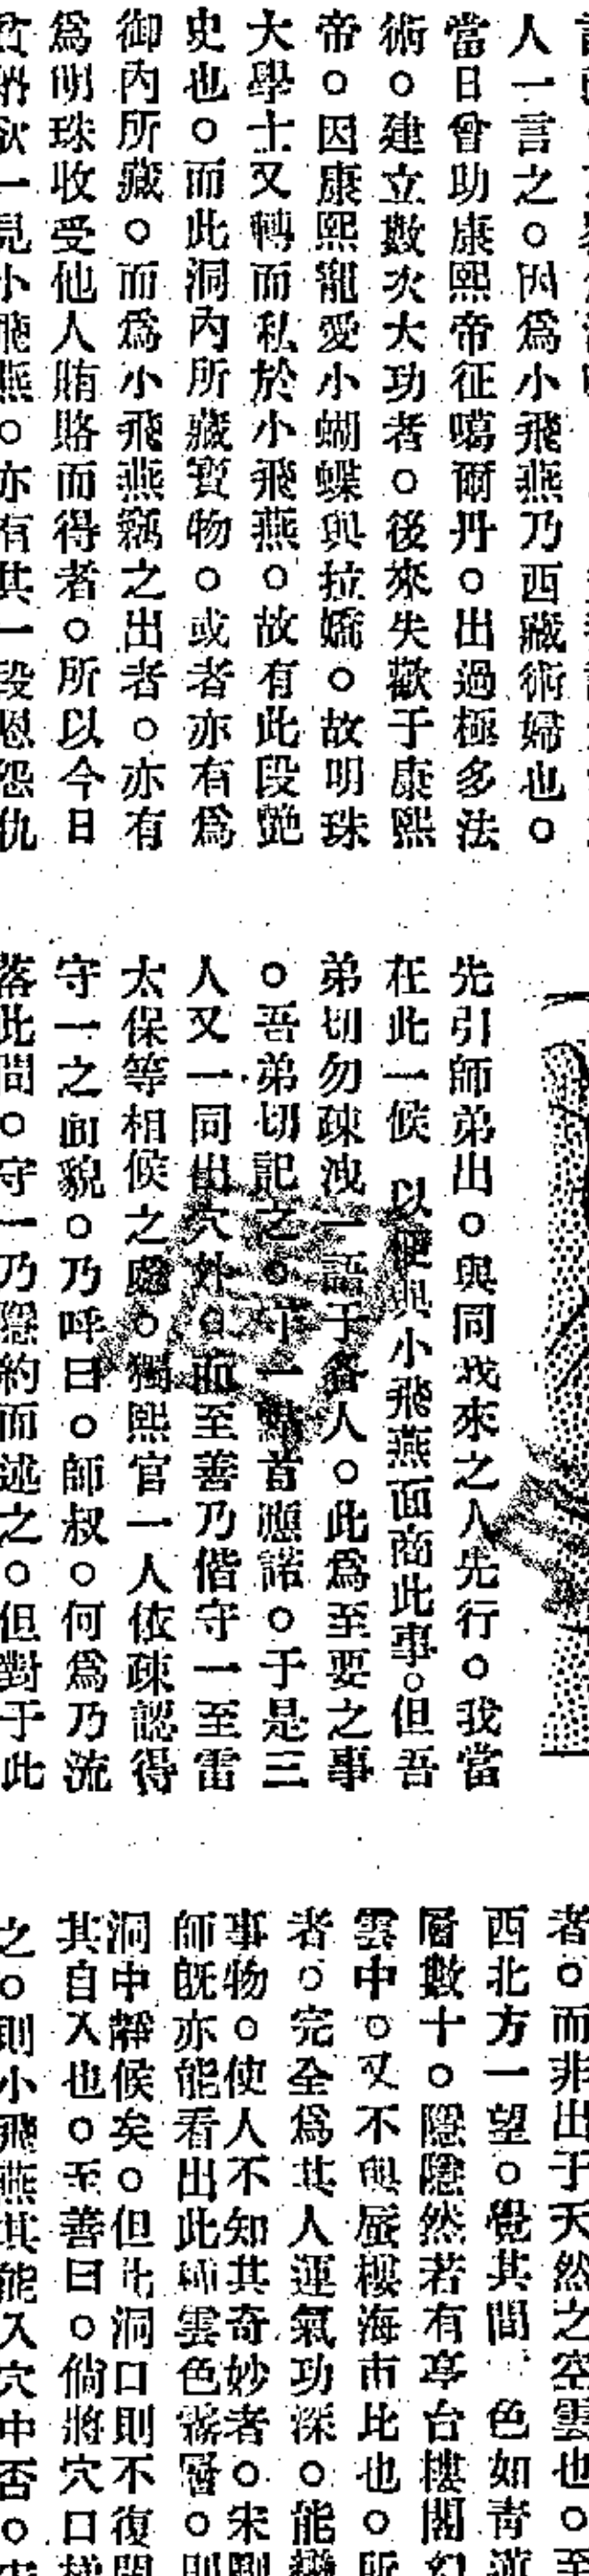 人一言之。因爲小飛燕乃西藏術婦也。
當日曾助康熙帝征噶爾丹。出過極多法
術。建立數次大功者。後來失歡于康熙
帝。因康熙寵愛小蝴蝶與拉嬌。故明珠
大學士又轉而私於小飛燕。故有此段艷
史也。而此洞內所藏寶物。或者亦有爲
御內所藏。而爲小飛燕竊之出者。亦有
爲明珠收受他人賄賂而得者。所以今日
欲一見小飛燕。亦有其一段恩怨仇
先引師弟出。與同我來之人先行。我當
在此一候 以便與小飛燕面商此事。但吾
弟切勿疎洩一語于各人。此爲至要之事
。吾弟切記之。守一點首應諾。于是三
人又一同出穴外。而至善乃偕守一至雷
太保等相候之處。獨熙官一人依疎認得
守一之面貌。乃呼曰。師叔。何爲乃流
落此間。守一乃隱約而述之。但對于此
者。而非出于天然之空雲也。至
西北方一望。覺其間 色如靑蓮
層數十。隱隱然若有亭台樓閣幻
雲中。又不與蜃樓海市比也。所
者。完全爲其人運氣功深。能
事物。使人不知其奇妙者。未
師旣亦能看出此種雲色霧層。則
洞中靜候矣。但此洞口則不復開
其自入也。至善曰。倘將穴口
之。則小飛燕其能入穴中否。